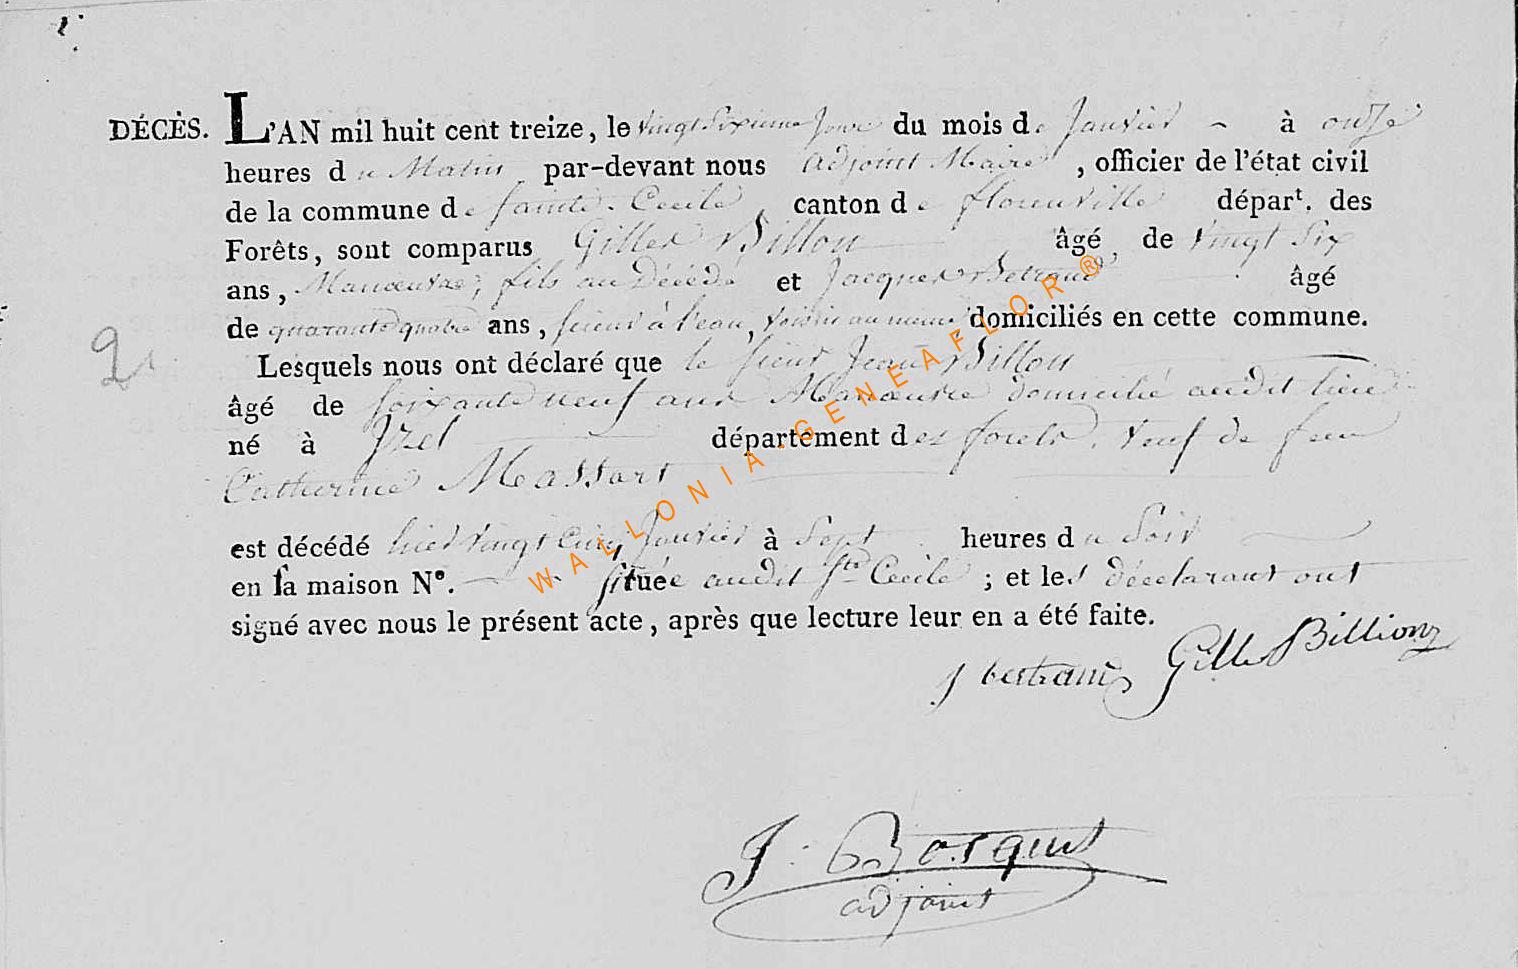 DÉCÈS. L'AN mil huit cent treize, le vingt Sixieme Jour du mois de Janvier à onze
heures du Matin par-devant nous adjoint Maire, officier de l'état civil
de la commune de Sainte. Cecile, canton de florenville départ. des
Forêts, sont comparus Gilles Billon âgé de vingt Six
ans, Manoeuvre, fils au Décédé et Jacques âgé
de quarante quatre ans, scieur à l'eau, voisin au même, domiciliés en cette commune.
2
Lesquels nous ont déclaré que le sieur Jean Billon
âgé de soixante neuf ans Manoeuvre domicilié audit lieu
né à Izel département des forets. veuf de feue
Catherine Massart
est décédé hier vingt Cinq Janvier à Sept heures du Soir
en sa maison N°. située audit Ste Cecile; et les déclarant ont
signé avec nous le présent acte, après que lecture leur en a été faite.
J bertrand Gille Billion
J. Bosquet
adjoint
WALLONIA-GENEAFLOR®